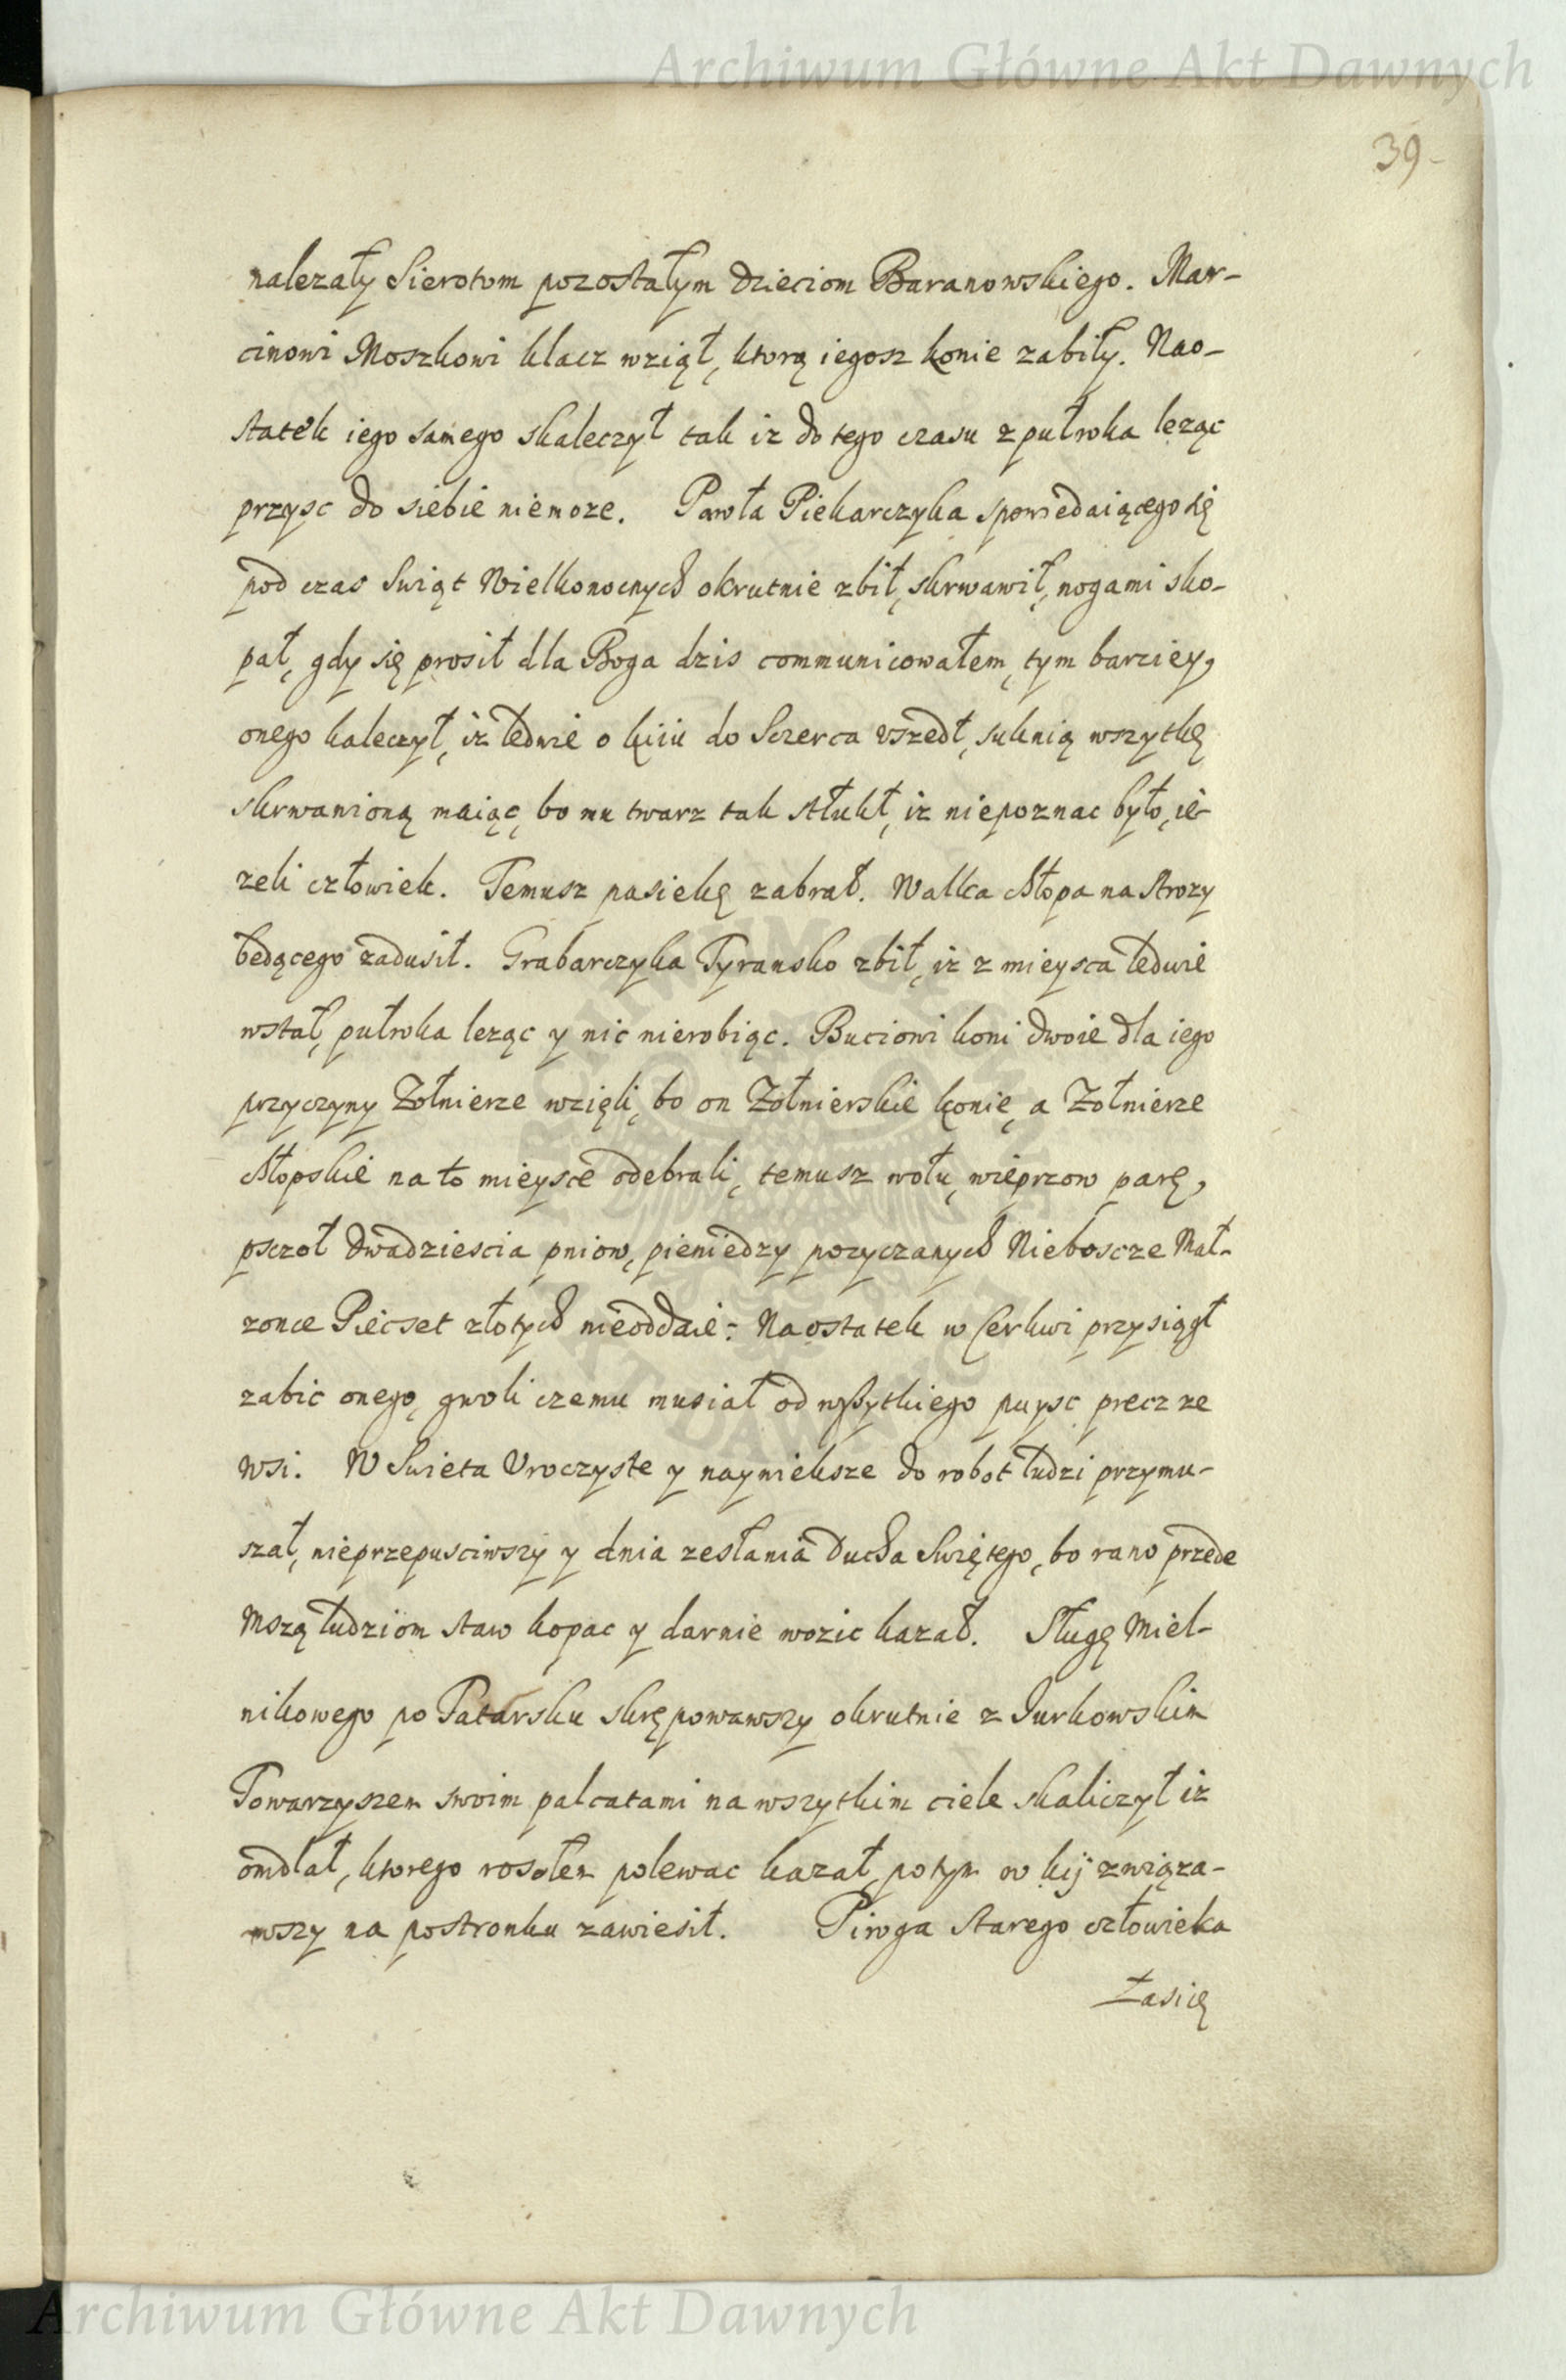 Archiwum Główne Akt Dawnych
39
nalezały Sierotom pozostałym dzieciom Baranowskiego. Mar-
cinowi Moszkowi klacz wziął, ktorą iegosz konie zabiły. Nao-
statek iego samego skaleczył tak iz do tego czasu z pułroka leząc
przysc do siebie niemoze. Pawła Piekarczyka spowiedaiącego się
pod czas Swiąt Wielkonocnych okrutnie zbił, skrwawił, nogami sko-
pał, gdy się prosił dla Boga dzis communicowałem, tym barziey,
onego kaleczył, iz ledwie o kiiu do Sczerca vszedł, suknią wszytkę
skrwawioną maiąc, bo mu twarz tak stłukł, iz niepoznac było, ie-
zeli człowiek. Temusz pasiekę zabrał. Walka chłopa na strozy
bedącego zadusił. Grabarczyka Tyransko zbił, iz z mieysca ledwie
wstał, pułroka leząc y nic nierobiąc. Buciowi koni dwoie dla iego
przyczyny Zołnierze wzięli, bo on Zołnierskie konie, a Zołnierze
chłopskie na to mieysce odebrali, temusz wołu, wieprzow parę,
psczoł dwadziescia pniow, pieniedzy pozyczanych Nieboscze Mał-
zonce Piecset złotych nieoddaie: Na ostatek w Cerkwi przysiągł
zabic onego, gwoli czemu musiał od wszytkiego puysc precz ze
wsi. W Swieta Vroczyste y naywieksze do robot ludzi przymu-
szał, nieprzepusciwszy y dnia zesłania Ducha Swiętego, bo rano przede
Mszą ludziom staw kopac y darnie wozic kazał. Sługę Miel-
nikowego po Tatarsku skrępowawszy okrutnie z Jurkowskim
Towarzyszem swoim palcatami na wszytkim ciele skaliczył iz
omdlał, ktorego rosołem polewac kazał, potym w kij związa-
wszy na postronku zawiesił. Piroga starego człowieka
Łasię
Archiwum Główne Akt Dawnych